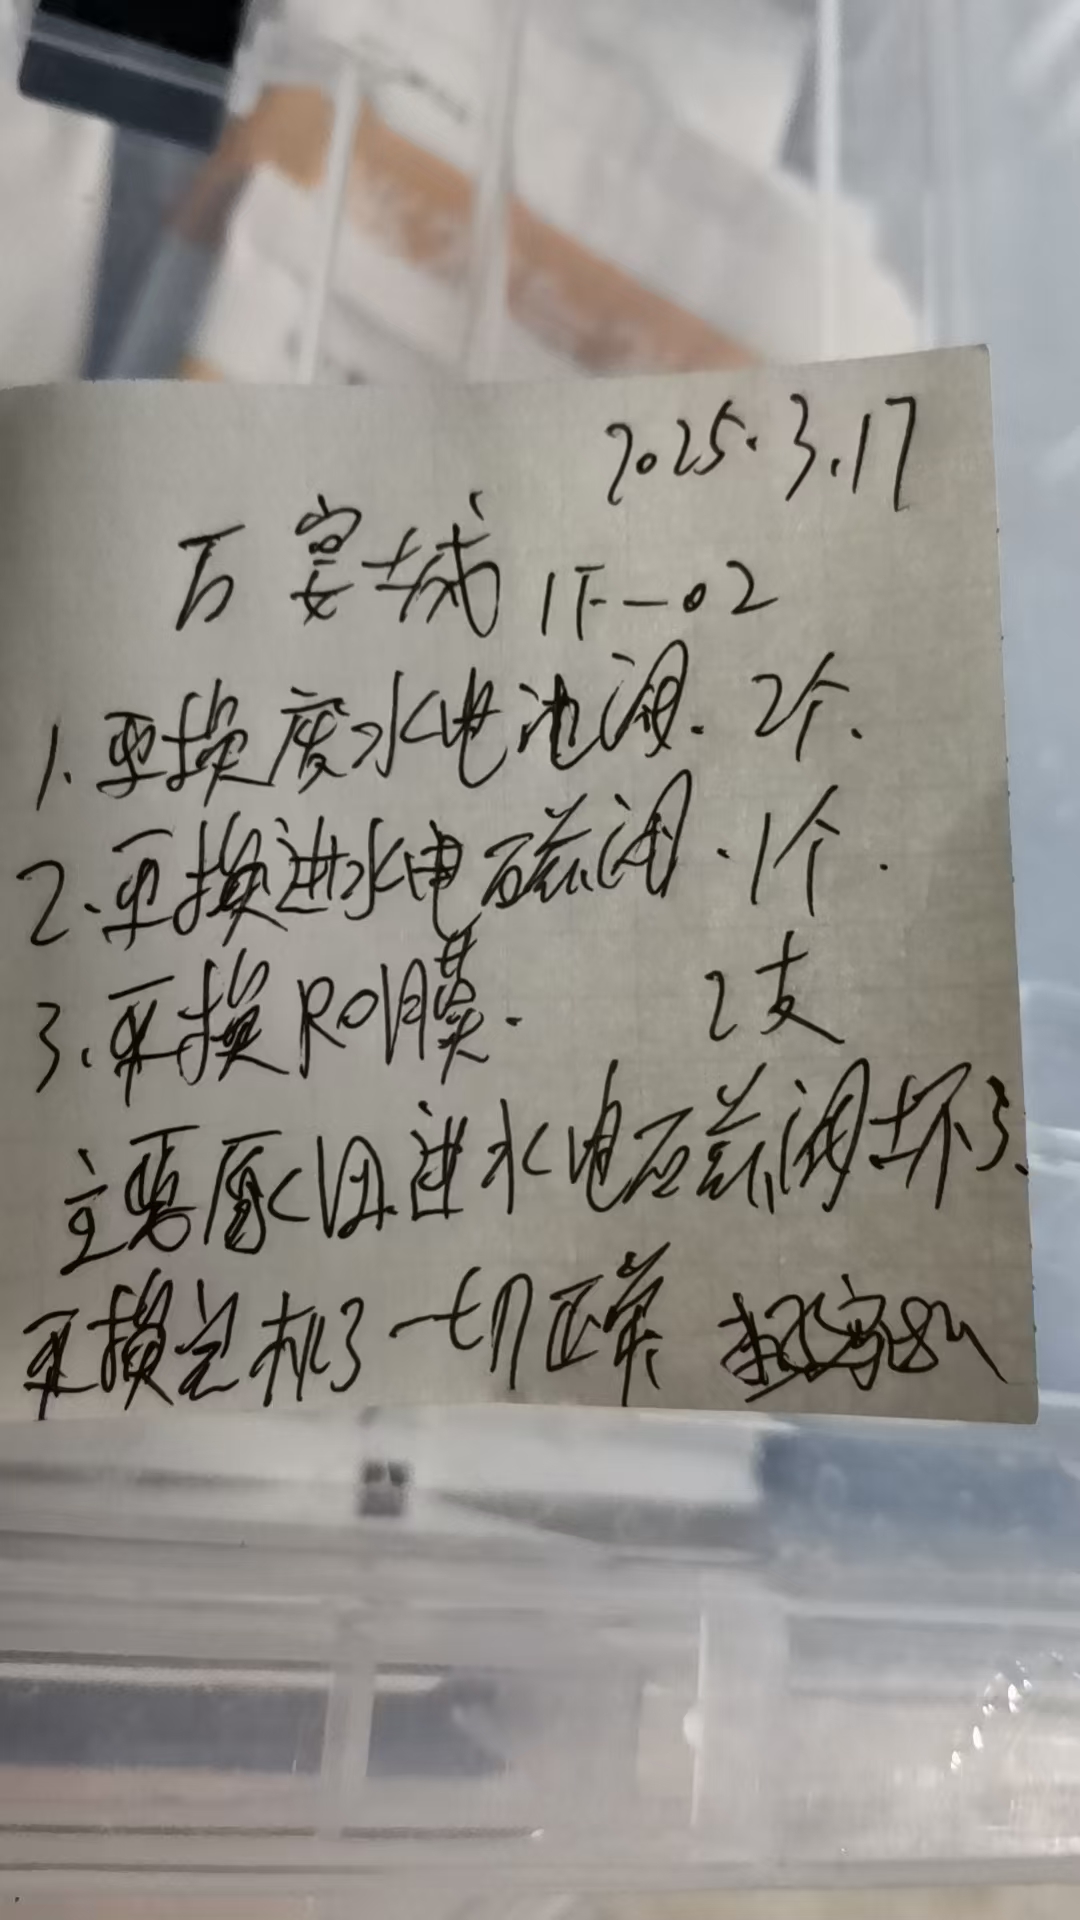 2025.3.17
万宴城 1F-02
1.更换废水电池阀.2个.
2.更换进水电磁阀.1个.
3.更换RO膜. 2支
主要原因进水电磁阀坏了.
更换完机了一切正常